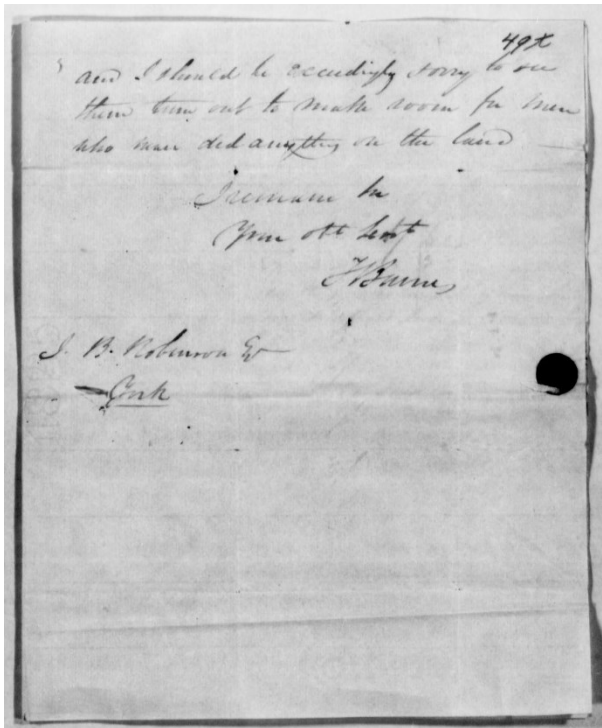 49x
and I should be exceedingly sorry to see
them turn out to make room for men
who never did anything on the land
I remain Sir
Your obt Servt
J. B. Robinson Esqr
York